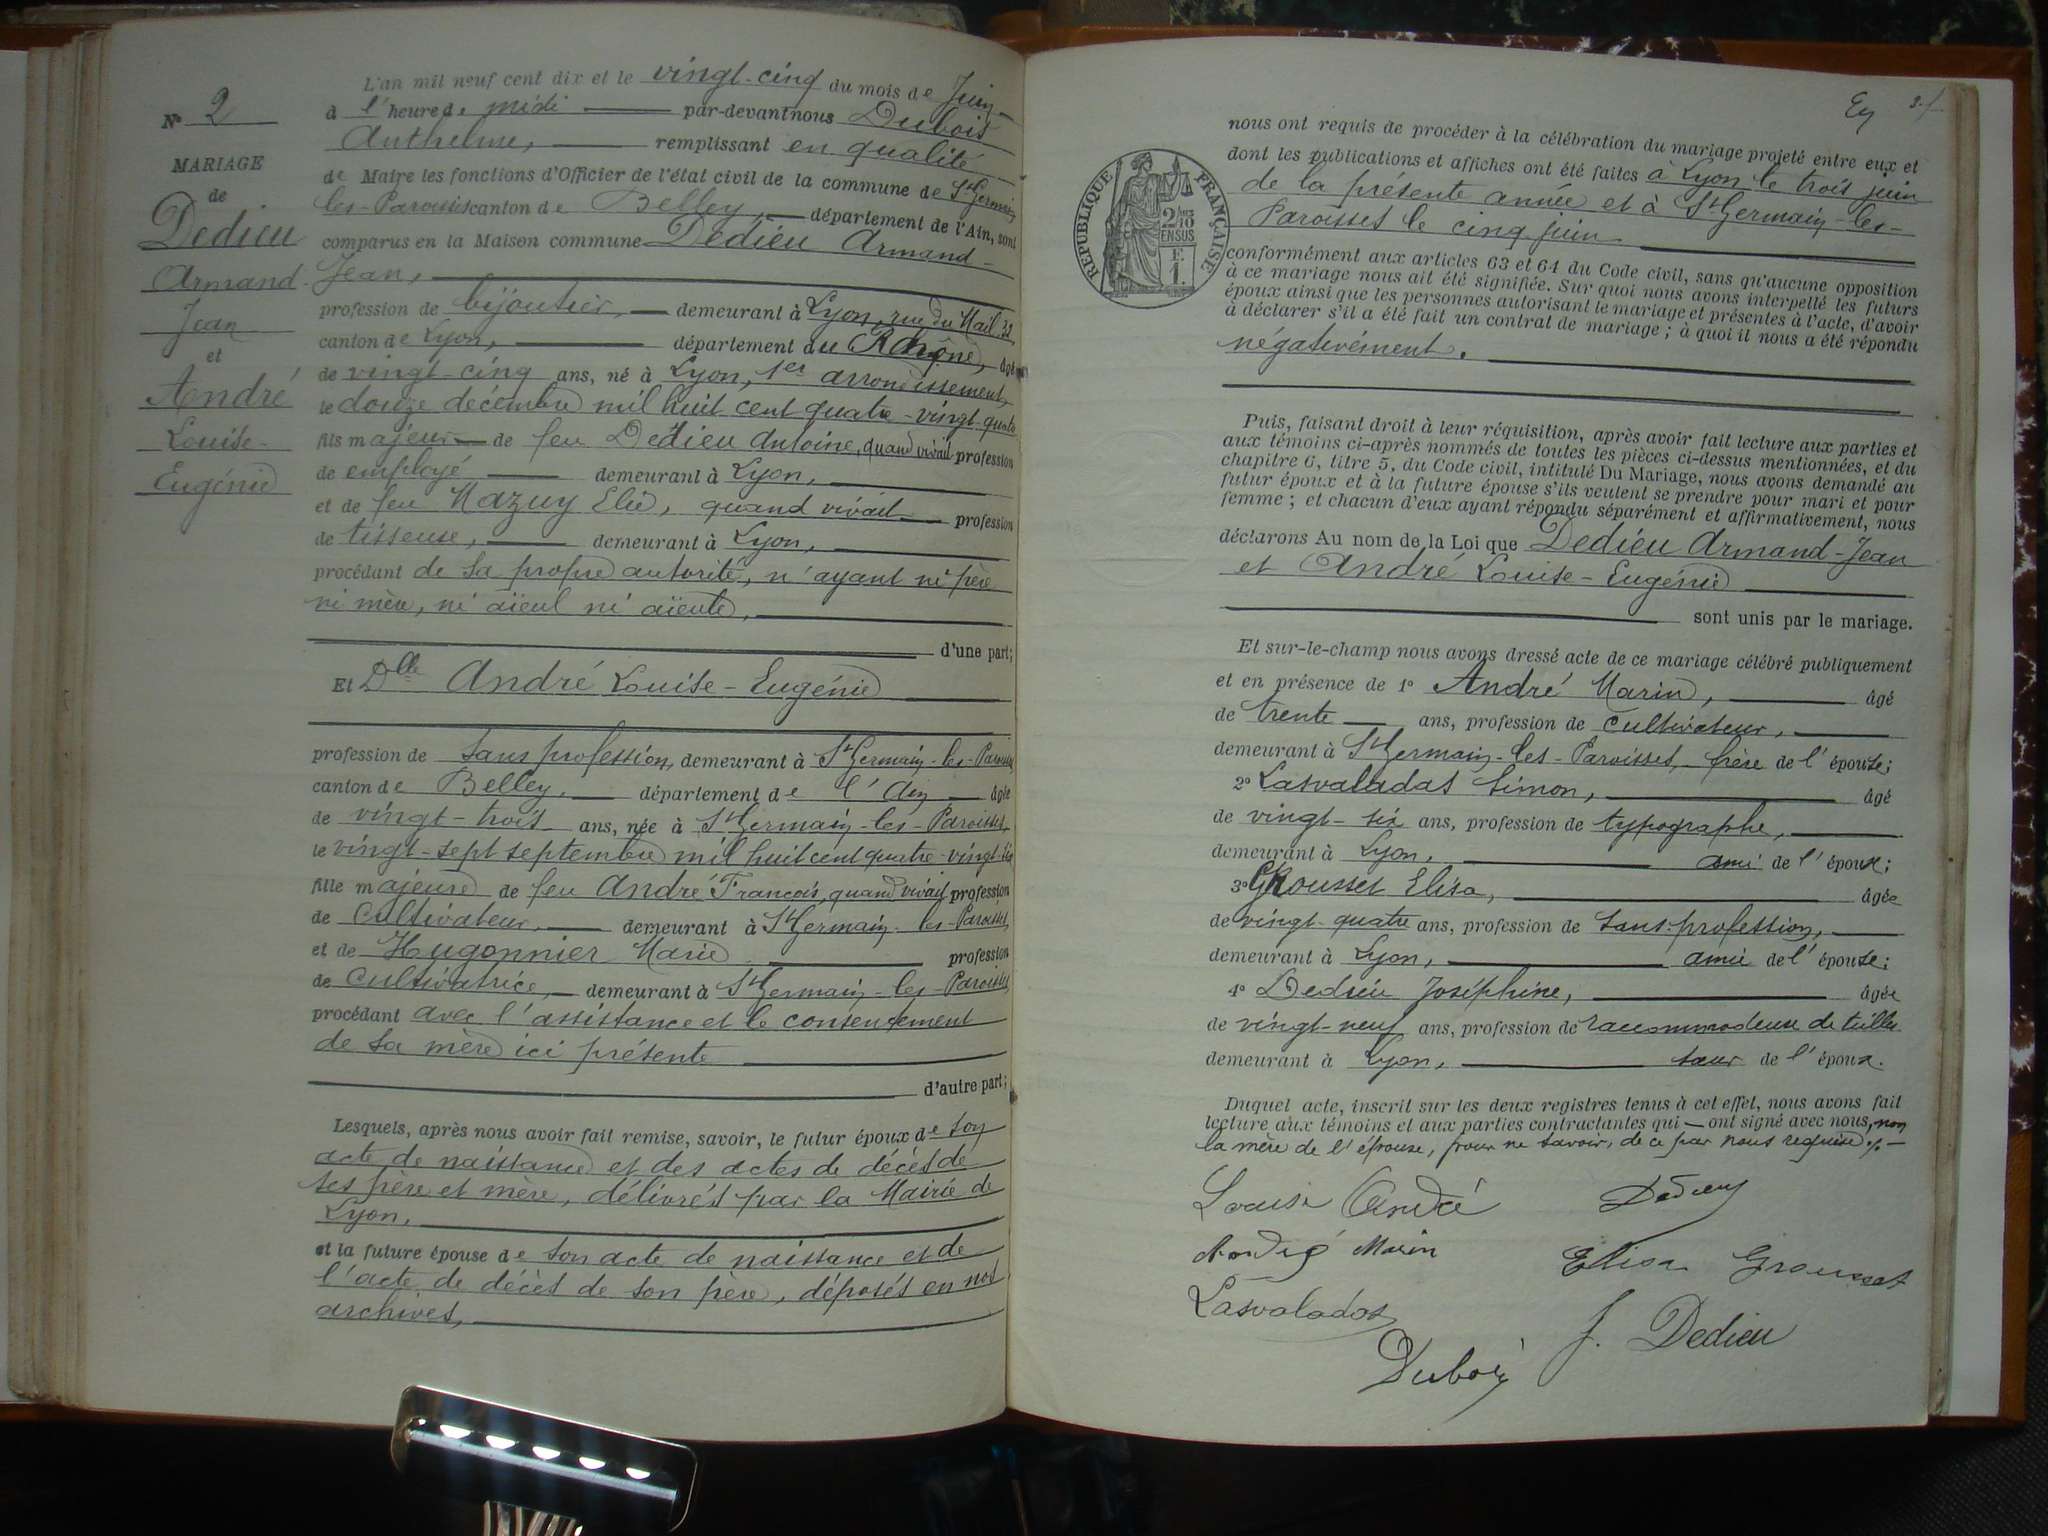 N° 2
MARIAGE
de
Dedieu
Armand
Jean
et
André
Louise-
Eugénie
L'an mil neuf cent dix et le vingt-cinq du mois de Juin
à l'heure de midi par-devant nous Dubois
Anthelme, remplissant en qualité
de Maire les fonctions d'Officier de l'état civil de la commune de St Germain
les-Paroisses canton de Belley, département de l'Ain, sont
comparus en la Maison commune Dedieu Armand-
Jean,
profession de bijoutier, demeurant à Lyon, rue du Mail 32
canton de Lyon, département du Rhône, âgé
de vingt-cinq ans, né à Lyon, 1er arrondissement,
le douze décembre mil huit cent quatre-vingt-quatre
fils majeur de feu Dedieu Antoine, quand vivait profession
de employé demeurant à Lyon,
et de feu Mazuy Elie, quand vivait profession
de tisseuse, demeurant à Lyon,
procédant de sa propre autorité, n'ayant ni père
ni mère, ni aïeul ni aïeule,
d'une part;
Et Dlle André Louise-Eugénie
profession de sans profession, demeurant à St Germain-les-Paroisses
canton de Belley, département de l'Ain âgée
de vingt-trois ans, née à St Germain-les-Paroisses,
le vingt-sept septembre mil huit cent quatre-vingt-six
fille majeure de feu André François, quand vivait profession
de cultivateur, demeurant à St Germain-les-Paroisses,
et de Hugonnier Marie profession
de cultivatrice, demeurant à St Germain-les-Paroisses,
procédant avec l'assistance et le consentement
de sa mère ici présente
d'autre part;
Lesquels, après nous avoir fait remise, savoir, le futur époux de son
acte de naissance et des actes de décès de
ses père et mère, délivrés par la Mairie de
Lyon,
et la future épouse de son acte de naissance et de
l'acte de décès de son père, déposés en nos
archives,
RÉPUBLIQUE FRANÇAISE
2/10
EN SUS
F.
1.
nous ont requis de procéder à la célébration du mariage projeté entre eux et
dont les publications et affiches ont été faites à Lyon le trois juin
de la présente année et à St Germain-les-
Paroisses le cinq juin
conformément aux articles 63 et 64 du Code civil, sans qu'aucune opposition
à ce mariage nous ait été signifiée. Sur quoi nous avons interpellé les futurs
époux ainsi que les personnes autorisant le mariage et présentes à l'acte, d'avoir
à déclarer s'il a été fait un contrat de mariage ; à quoi il nous a été répondu
négativement.
Puis, faisant droit à leur réquisition, après avoir fait lecture aux parties et
aux témoins ci-après nommés de toutes les pièces ci-dessus mentionnées, et du
chapitre 6, titre 5, du Code civil, intitulé Du Mariage, nous avons demandé au
futur époux et à la future épouse s'ils veulent se prendre pour mari et pour
femme ; et chacun d'eux ayant répondu séparément et affirmativement, nous
déclarons Au nom de la Loi que Dedieu Armand-Jean
et André Louise-Eugénie
sont unis par le mariage.
Et sur-le-champ nous avons dressé acte de ce mariage célébré publiquement
et en présence de 1° André Marin, âgé
de trente ans, profession de cultivateur,
demeurant à St Germain-les-Paroisses, frère de l'épouse;
2° Lasvaladas Simon, âgé
de vingt-six ans, profession de typographe,
demeurant à Lyon, ami de l'époux;
3° Grousset Elisa, âgée
de vingt-quatre ans, profession de sans profession,
demeurant à Lyon, amie de l'épouse;
4° Dedieu Joséphine, âgée
de vingt-neuf ans, profession de raccommodeuse de tulles
demeurant à Lyon, sœur de l'époux.
Duquel acte, inscrit sur les deux registres tenus à cet effet, nous avons fait
lecture aux témoins et aux parties contractantes qui ont signé avec nous, non
la mère de l'épouse, pour ne savoir, de ce par nous requise.
Louise André Dedieu
André Marin Elisa Grousset
Lasvaladas J. Dedieu
Dubois